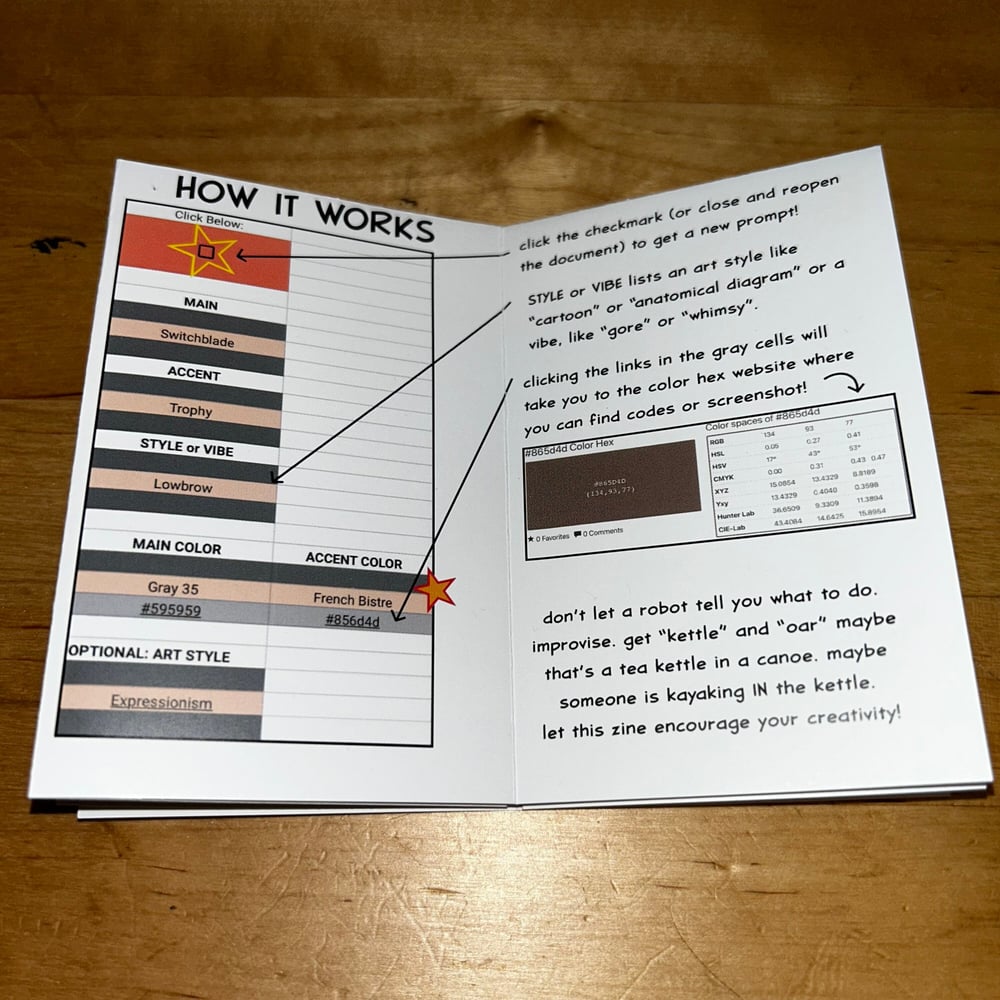 HOW IT WORKS
Click Below:
MAIN
Switchblade
ACCENT
Trophy
STYLE or VIBE
Lowbrow
MAIN COLOR
ACCENT COLOR
Gray 35
French Bistre
#595959
#856d4d
OPTIONAL: ART STYLE
Expressionism
click the checkmark (or close and reopen
the document) to get a new prompt!
STYLE or VIBE lists an art style like
"cartoon" or "anatomical diagram" or a
vibe, like "gore" or "whimsy".
clicking the links in the gray cells will
take you to the color hex website where
you can find codes or screenshot!
#865d4d Color Hex
#865D4D
(134,93,77)
★ 0 Favorites 0 Comments
Color spaces of #865d4d
RGB 134 93 77
HSL 0.05 0.27 0.41
HSV 17° 43° 53°
CMYK 0.00 0.31 0.43 0.47
XYZ 15.0854 13.4329 8.8189
Yxy 13.4329 0.4040 0.3598
Hunter Lab 36.6509 9.3309 11.3894
CIE-Lab 43.4084 14.6425 15.8954
don't let a robot tell you what to do.
improvise. get "kettle" and "oar" maybe
that's a tea kettle in a canoe. maybe
someone is kayaking IN the kettle.
let this zine encourage your creativity!